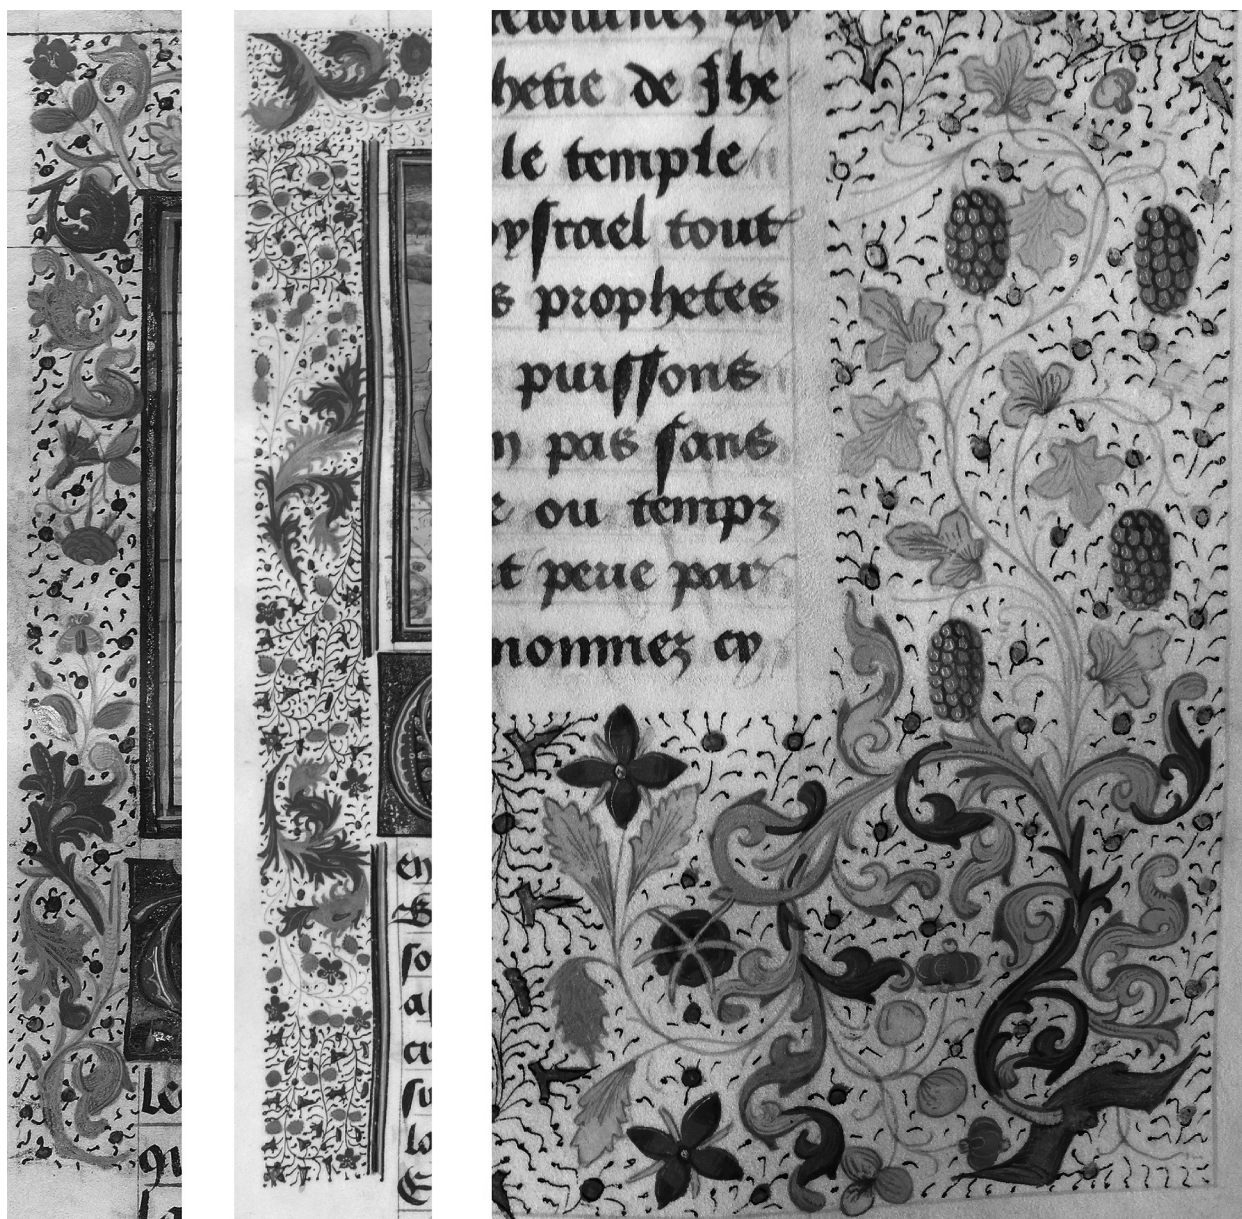 le
qu
en
so
a
su
la
hetie de Jhe
le temple
yſrael tout
s prophetes
puiſſons
n pas ſans
e ou tempz
t peue par
nommez cy